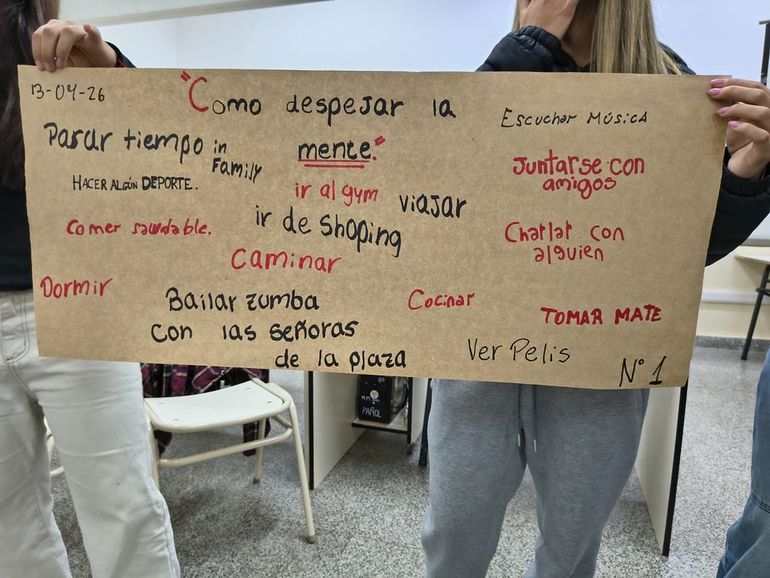 13-04-26
"Como despejar la
mente."
Pasar tiempo in
Family
HACER ALGÚN DEPORTE.
Comer saludable.
Dormir
ir al gym
viajar
ir de Shoping
Caminar
Bailar zumba
con las señoras
de la plaza
Cocinar
Escuchar Música
Juntarse con
amigos
Charlar con
alguien
TOMAR MATE
Ver Pelis
N° 1
PAÑOL